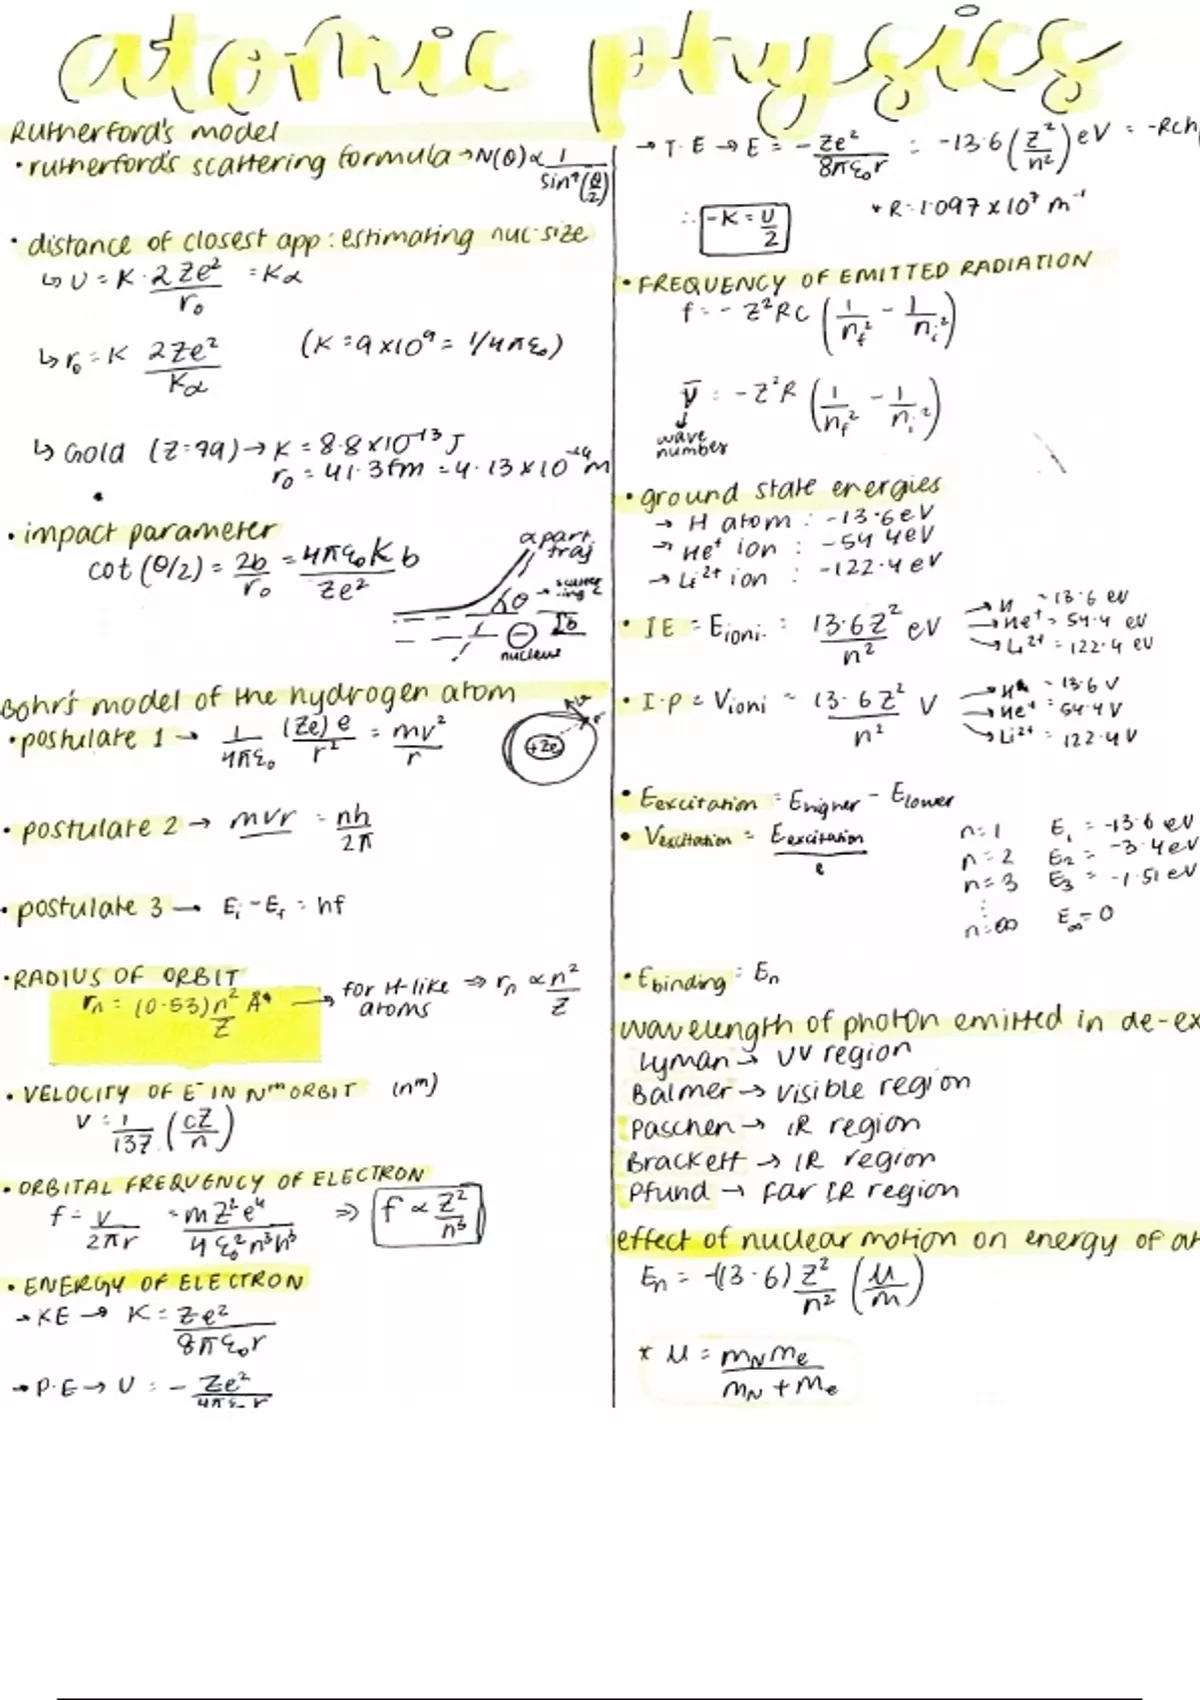 atomic physics
Rutherford's model
• rutherford's scattering formula → N(θ) ∝ 1/sin⁴(θ/2)
• distance of closest app : estimating nuc. size
↳ U = K · 2Ze²/r₀ = Kα
↳ r₀ = K 2Ze²/Kα (K = 9 × 10⁹ = 1/4πε₀)
↳ Gold (Z = 79) → K = 8.8 × 10⁻¹³ J
r₀ = 41.3fm = 4.13 × 10⁻¹⁴ m
• impact parameter
cot (θ/2) = 2b/r₀ = 4πε₀K b/Ze²
α part. traj
θ → scatter-ing ∠
b
nucleus
Bohr's model of the hydrogen atom
• postulate 1 → 1/4πε₀ (Ze) e/r² = mv²/r
+Ze
v
e⁻
• postulate 2 → mvr = nh/2π
• postulate 3 → Eᵢ - E_f = hf
• RADIUS OF ORBIT
rₙ = (0.53) n²/Z Å → for H-like atoms ⇒ rₙ ∝ n²/Z
• VELOCITY OF E⁻ IN Nᵗʰ ORBIT (nᵗʰ)
v = 1/137 (cZ/n)
• ORBITAL FREQUENCY OF ELECTRON
f = v/2πr = mZ²e⁴/4ε₀²n³h³ ⇒ f ∝ Z²/n³
• ENERGY OF ELECTRON
→ KE → K = Ze²/8πε₀r
→ P.E → U = - Ze²/4πε₀r
→ T.E → E = - Ze²/8πε₀r = -13.6 (Z²/n²) eV = -Rch
∴ -K = U/2
* R = 1.097 × 10⁷ m⁻¹
• FREQUENCY OF EMITTED RADIATION
f = - Z²RC (1/n_f² - 1/nᵢ²)
ν̄ = - Z²R (1/n_f² - 1/nᵢ²)
↓
wave number
• ground state energies
→ H atom : -13.6 eV
→ He⁺ ion : -54.4eV
→ Li²⁺ ion : -122.4 eV
• IE = E_ioni. = 13.6Z²/n² eV → H = 13.6 eV
→ He⁺ = 54.4 eV
→ Li²⁺ = 122.4 eV
• I.P = V_ioni = 13.6Z²/n² V → H = 13.6 V
→ He⁺ = 54.4 V
→ Li²⁺ = 122.4 V
• E_excitation = E_higher - E_lower
• V_excitation = E_excitation/e
n = 1 E₁ = -13.6 eV
n = 2 E₂ = -3.4 eV
n = 3 E₃ = -1.51 eV
⋮
n = ∞ E∞ = 0
• E_binding = Eₙ
wavelength of photon emitted in de-ex
Lyman → UV region
Balmer → visible region
Paschen → IR region
Brackett → IR region
Pfund → far IR region
effect of nuclear motion on energy of at
Eₙ = -(13.6) Z²/n² (μ/m)
* μ = m_N m_e/m_N + m_e